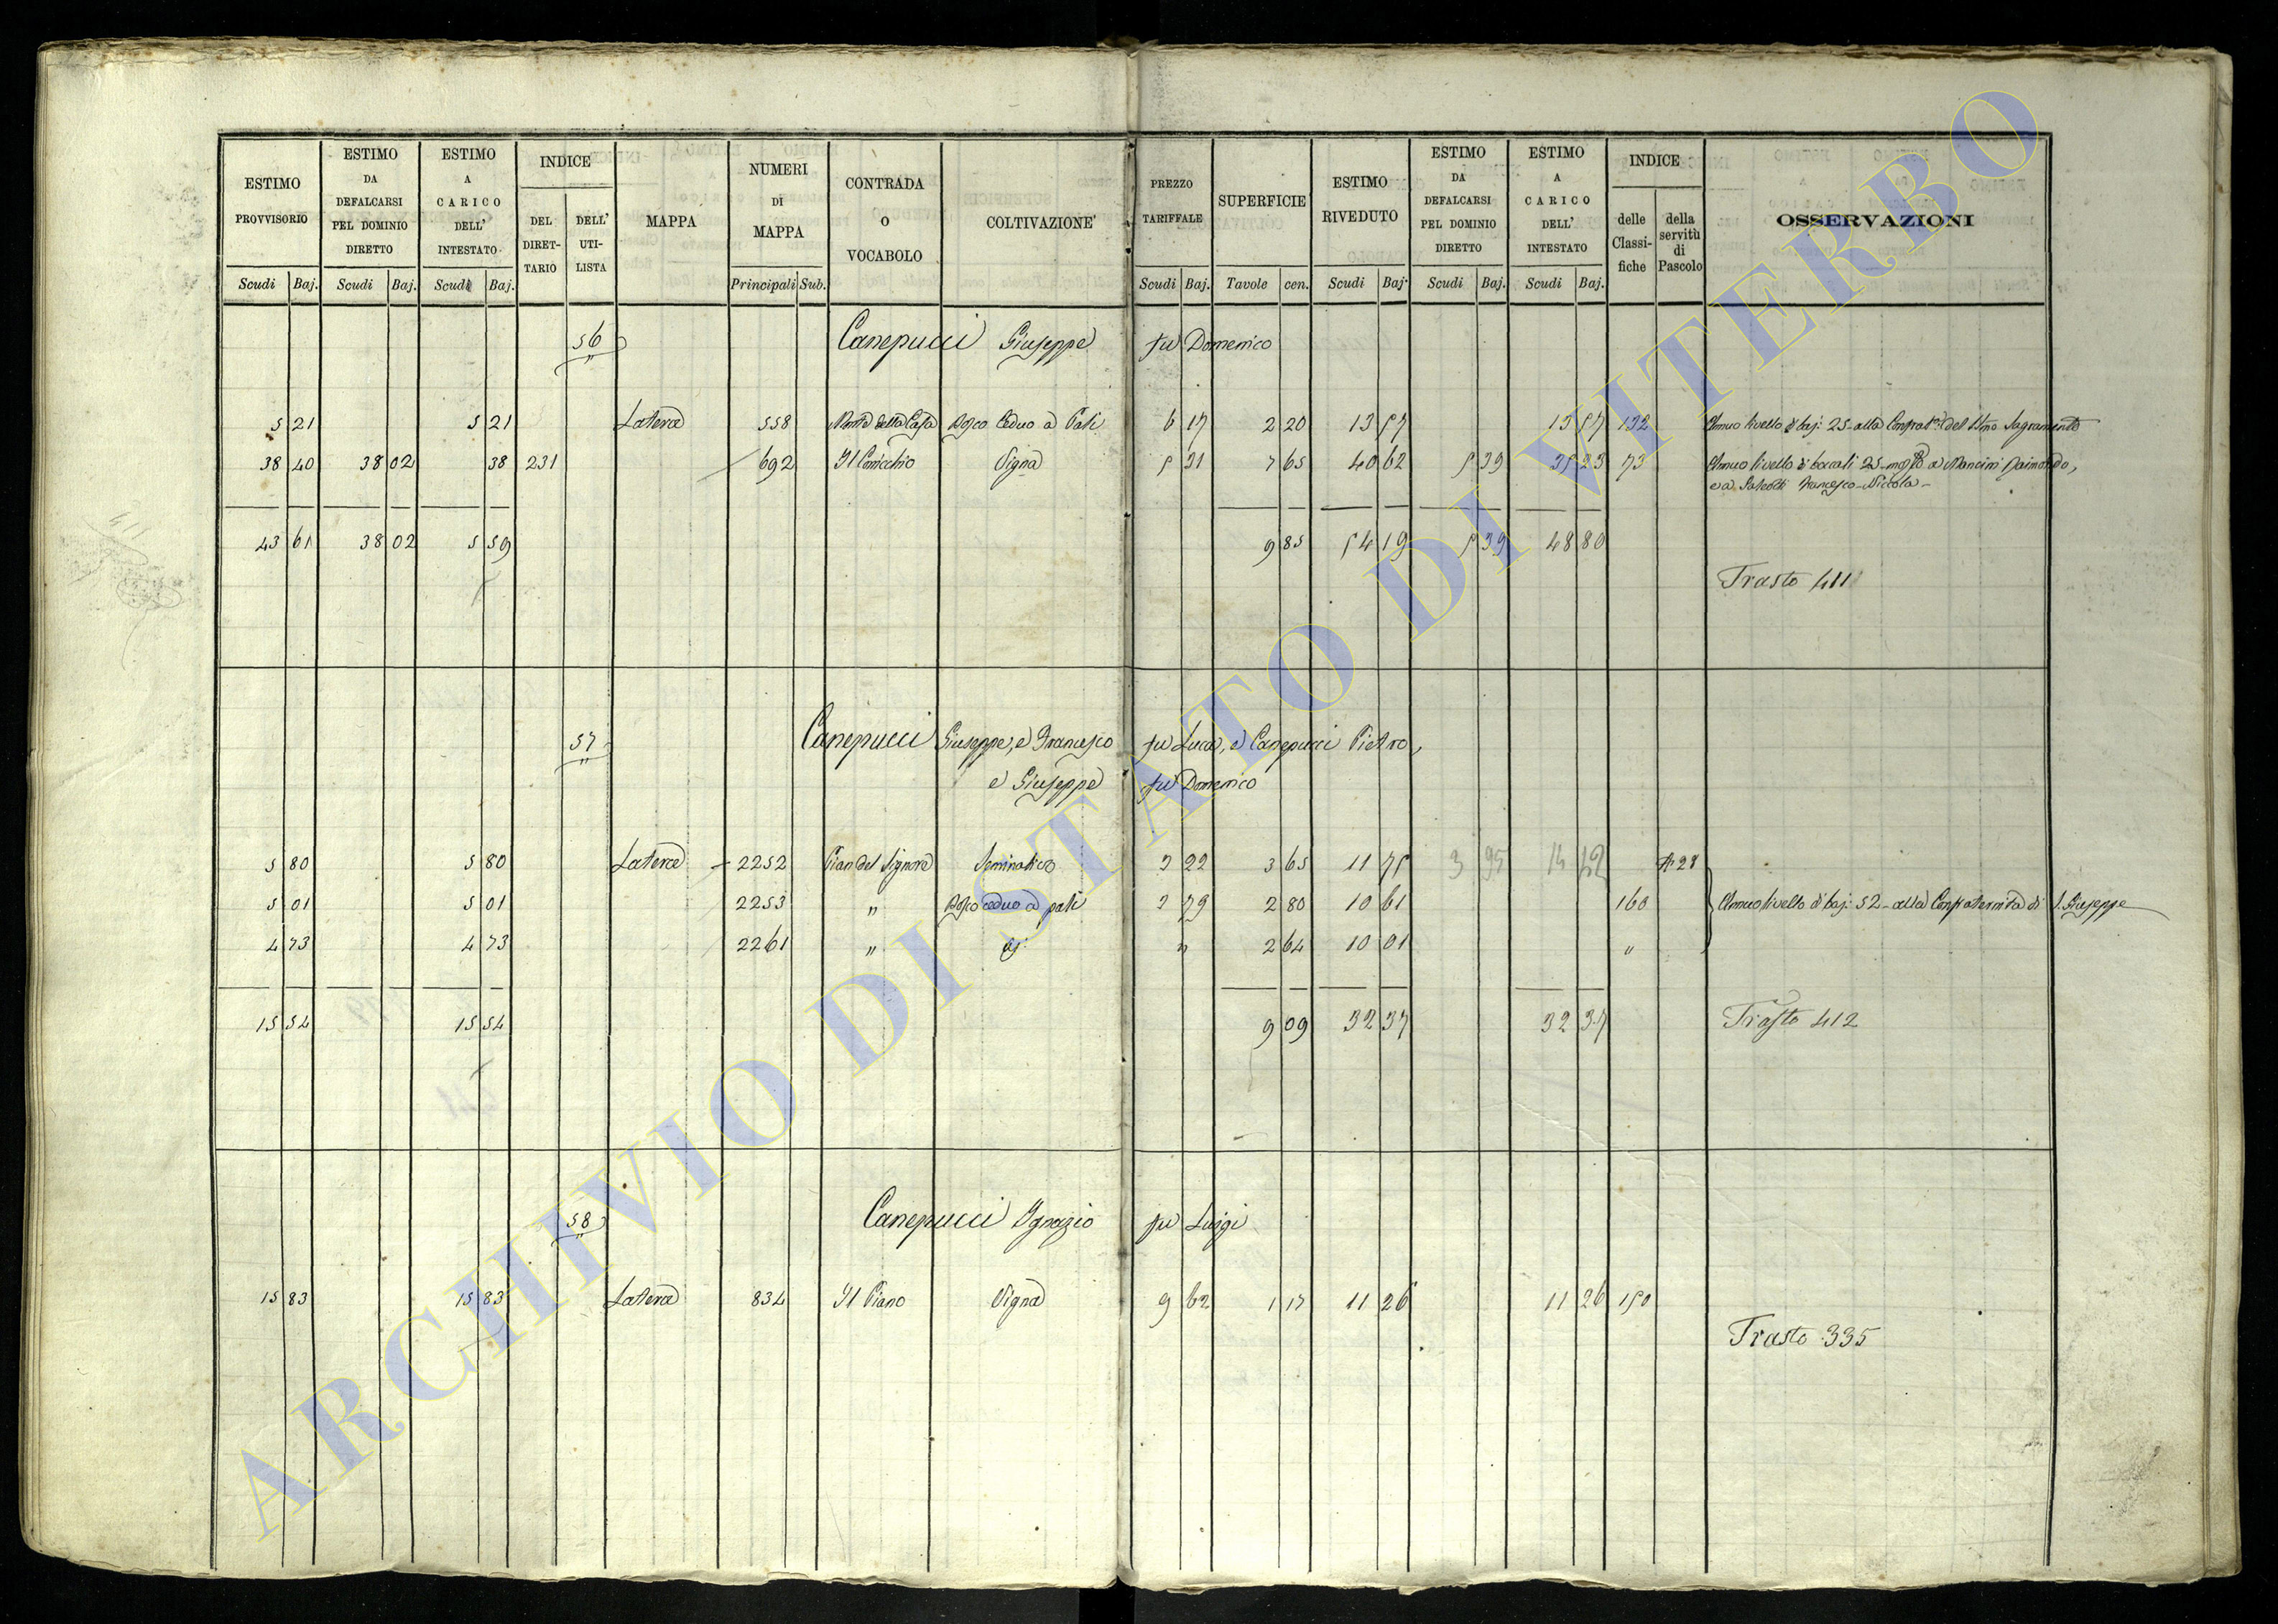 ESTIMO PROVVISORIO | ESTIMO DA DEFALCARSI PEL DOMINIO DIRETTO | ESTIMO A CARICO DELL' INTESTATO | INDICE | MAPPA | NUMERI DI MAPPA | CONTRADA O VOCABOLO | COLTIVAZIONE | PREZZO TARIFFALE | SUPERFICIE | ESTIMO RIVEDUTO | ESTIMO DA DEFALCARSI PEL DOMINIO DIRETTO | ESTIMO A CARICO DELL' INTESTATO | INDICE | OSSERVAZIONI
DEL DIRETTARIO | DELL' UTILISTA | delle Classifiche | della servitù di Pascolo
Scudi Baj. | Scudi Baj. | Scudi Baj. | Principali Sub. | Scudi Baj. | Tavole cen. | Scudi Baj. | Scudi Baj. | Scudi Baj.
56 Canepucci Giuseppe fu Domenico
5 21 | 5 21 | Latera | 558 | Monte della Casa | Bosco Ceduo a Pali | 6 17 | 2 20 | 13 57 | 13 57 | 132 | Annuo livello di baj. 25 alla Confrat. del SSmo Sagramento
38 40 | 38 02 | 38 | 231 | 692 | Il Carricchio | Vigna | 5 31 | 7 65 | 40 62 | 5 39 | 35 23 | 73 | Annuo livello di boccali 25 mosto a Mancini Raimondo,
e a Francesco Niccola
43 61 | 38 02 | 5 59 | 9 85 | 54 19 | 5 39 | 48 80
Trasto 411
57 Canepucci Giuseppe, e Francesco fu Luca, e Canepucci Pietro,
e Giuseppe fu Domenico
5 80 | 5 80 | Latera | 2252 | Pian del Signore | Seminativo | 3 22 | 3 65 | 11 75 | 3 95 | 14 42 | 28
5 01 | 5 01 | 2253 | " | Bosco ceduo a pali | 3 79 | 2 80 | 10 61 | 160 | Annuo livello di baj. 52 alla Confraternita di S. Giuseppe
4 73 | 4 73 | 2261 | " | " | 2 64 | 10 01 | "
15 54 | 15 54 | 9 09 | 32 37 | 32 37 | Trasto 412
58 Canepucci Ignazio fu Luigi
15 83 | 15 83 | Latera | 834 | Il Piano | Vigna | 9 62 | 1 17 | 11 26 | 11 26 | 150
Trasto 335
ARCHIVIO DI STATO DI VITERBO